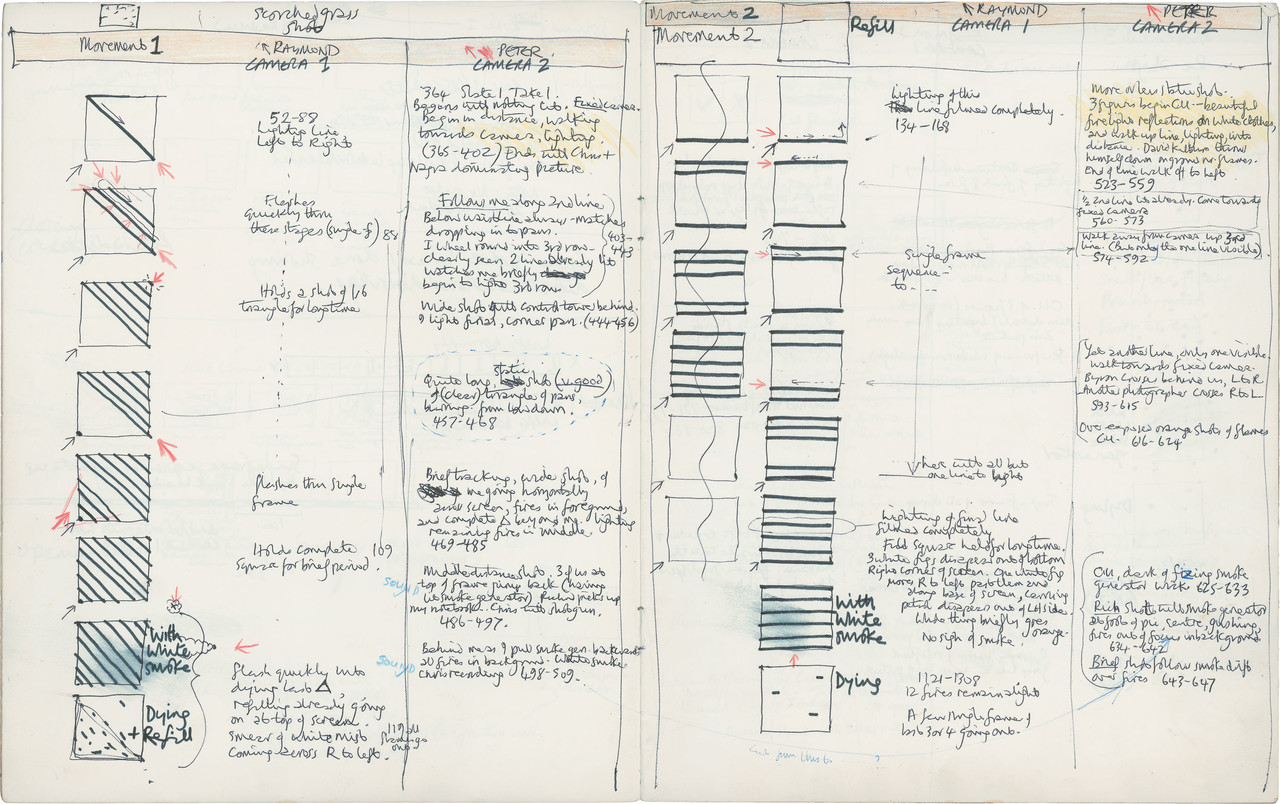 Scorched grass
shot
Movement 1
RAYMOND
CAMERA 1
PETER
CAMERA 2
52-88
Lighting line
Left to Right
Flashes
quickly thru
these stages (single f) 88
Holds a shot of
triangle for long time
Flashes thru single
frame
Holds complete 109
square for brief period.
With
White
smoke
Flash quickly into
dying last △
refilling already going
on at top of screen.
Smear of white mist
Coming across R to left.
Dying
+ Refill
364 Slate 1, Take 1.
Begins with nothing lit. Fixed camera.
Begin in distance, walking
towards camera, lighting.
(365-402) Ends with Chris +
Nagra dominating picture.
Follow me along 2nd line
Below waistline - matches
dropping into pans.
403-
443
I wheel round into 3rd row -
clearly seen 2 lines already lit
watches me briefly
begin to light 3rd row.
Wide shot with control tower behind.
I light final, corner pan. (444-456)
static
Quite long, shot (v. good)
of (clear) triangle of pans,
burning. from low down.
457-468
Brief tracking, wide shot, of
me going horizontally
across screen, fires in foreground,
and complete △ beyond me, lighting
remaining fires in middle.
469-485
SOUND
Middle distance shot. 3 of us at
top of frame running back (having
lit smoke generator) picks up
my notebook. Chris with shotgun.
486-497.
SOUND
Behind me as I pull smoke gen. backwards
all fires in background. White smoke
Chris recording 498-509.
Movement 2
Movement 2
Refill
RAYMOND
CAMERA 1
PETER
CAMERA 2
Lighting of this
line filmed completely.
134-168
single frame
sequence -
to - - - -
here with all but
one line to light
Lighting of final line
filmed completely
Full square held for long time.
3 white figs disappear out of bottom
Right corner of screen. One white fig
moves R to left past them and
along base of screen, carrying
petrol disappears out of LH side.
White thing briefly goes
orange.
No sign of smoke.
With
White
smoke
Dying
1121-1308
12 fires remain alight
A few single frames of
last 3 or 4 going out.
More or less static shot.
3 figures begin CU - beautiful
firelight reflections on white clothes,
and walk up line, lighting, into
distance. David Kilburn throws
himself down on ground nr. flames.
End of line walk off to left.
523-559
½ 2nd line lit already. Come towards
fixed camera
560-573
Walk away from camera up 3rd
line. (But only the one line visible)
574-592
Yet another line, only one visible.
walk towards fixed camera.
Byron crosses behind us, L to R
Another photographer crosses R to L.
593-615
Over exposed orange shots of flames
CU. 616-624
CU, dark, of fizzing smoke
generator wick 625-633
shot with smoke generator
at foot of pic, centre, gushing,
fires out of focus in background
634-642
Brief shot follow smoke drift
over fires 643-647